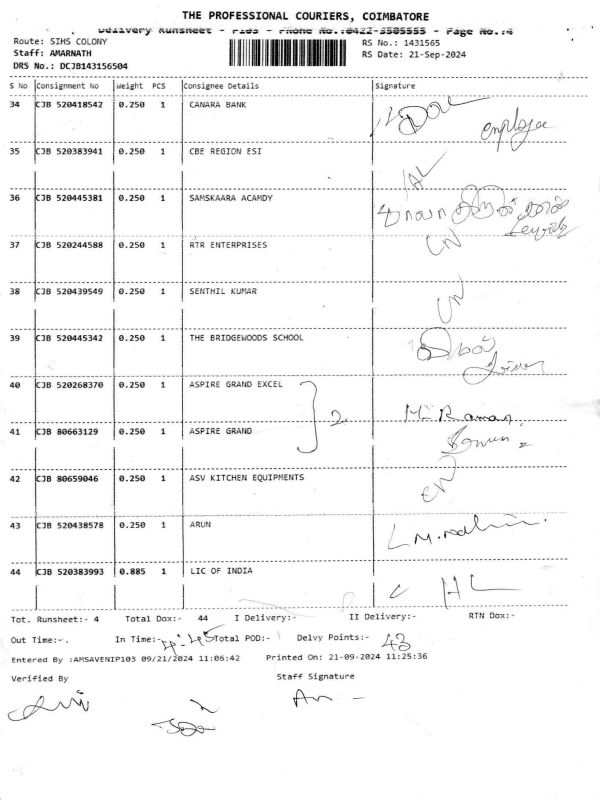 THE PROFESSIONAL COURIERS, COIMBATORE
Delivery Runsheet - P103 - Phone No.:0422-3505555 - Page No.:4
Route: SIHS COLONY
Staff: AMARNATH
DRS No.: DCJB143156504
RS No.: 1431565
RS Date: 21-Sep-2024
S No Consignment No Weight PCS Consignee Details Signature
34 CJB 520418542 0.250 1 CANARA BANK
employee
35 CJB 520383941 0.250 1 CBE REGION ESI
36 CJB 520445381 0.250 1 SAMSKAARA ACAMDY
37 CJB 520244588 0.250 1 RTR ENTERPRISES
38 CJB 520439549 0.250 1 SENTHIL KUMAR
39 CJB 520445342 0.250 1 THE BRIDGEWOODS SCHOOL
40 CJB 520268370 0.250 1 ASPIRE GRAND EXCEL
2 M. Raman
41 CJB 80663129 0.250 1 ASPIRE GRAND
42 CJB 80659046 0.250 1 ASV KITCHEN EQUIPMENTS
43 CJB 520438578 0.250 1 ARUN
44 CJB 520383993 0.885 1 LIC OF INDIA
Tot. Runsheet:- 4 Total Dox:- 44 I Delivery:- II Delivery:- RTN Dox:-
Out Time:-. In Time:- 4:45 Total POD:- Delvy Points:- 43
Entered By :AMSAVENIP103 09/21/2024 11:06:42 Printed On: 21-09-2024 11:25:36
Verified By Staff Signature